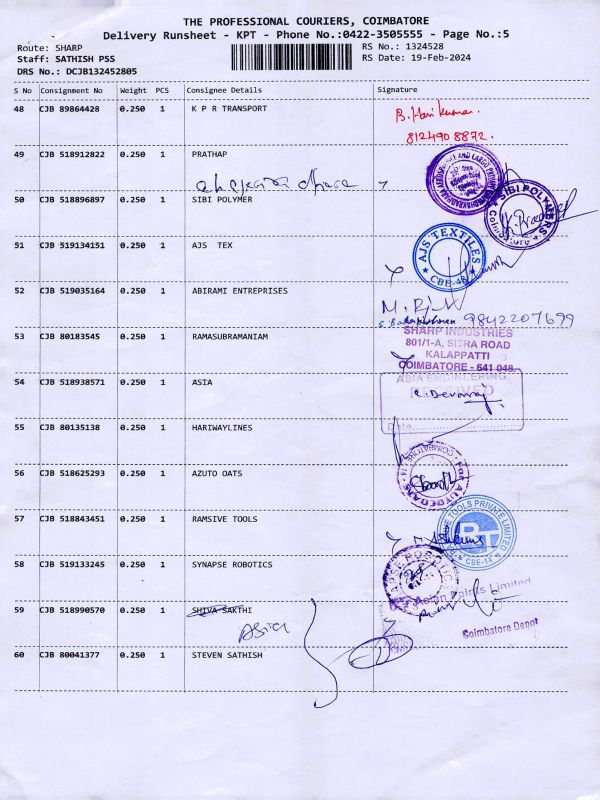 THE PROFESSIONAL COURIERS, COIMBATORE
Delivery Runsheet - KPT - Phone No.:0422-3505555 - Page No.:5
Route: SHARP
RS No.: 1324528
Staff: SATHISH PSS
RS Date: 19-Feb-2024
DRS No.: DCJB132452805
S No Consignment No Weight PCS Consignee Details Signature
48 CJB 89864428 0.250 1 K P R TRANSPORT
B. Hari kumar.
8124908872.
49 CJB 518912822 0.250 1 PRATHAP
50 CJB 518896897 0.250 1 SIBI POLYMER
SIBI POLYMERS
51 CJB 519134151 0.250 1 AJS TEX
AJS TEXTILES
CBE-48
52 CJB 519035164 0.250 1 ABIRAMI ENTREPRISES
9842207699
53 CJB 80183545 1 0.250 RAMASUBRAMANIAM
SHARP INDUSTRIES
801/1-A, SITRA ROAD
KALAPPATTI
COIMBATORE - 641 048.
54 CJB 518938571 0.250 1 ASIA
ASIA ENGINEERING
RECEIVED
C. Devaraj
Date
55 CJB 80135138 0.250 1 HARIWAYLINES
56 CJB 518625293 0.250 1 AZUTO OATS
57 CJB 518843451 0.250 1 RAMSIVE TOOLS
TOOLS PRIVATE LIMITED
CBE-14
58 CJB 519133245 0.250 1 SYNAPSE ROBOTICS
Asian Paints Limited
59 CJB 518990570 0.250 1 SHIVA SAKTHI
Asia
Coimbatore Depot
60 CJB 80041377 0.250 1 STEVEN SATHISH